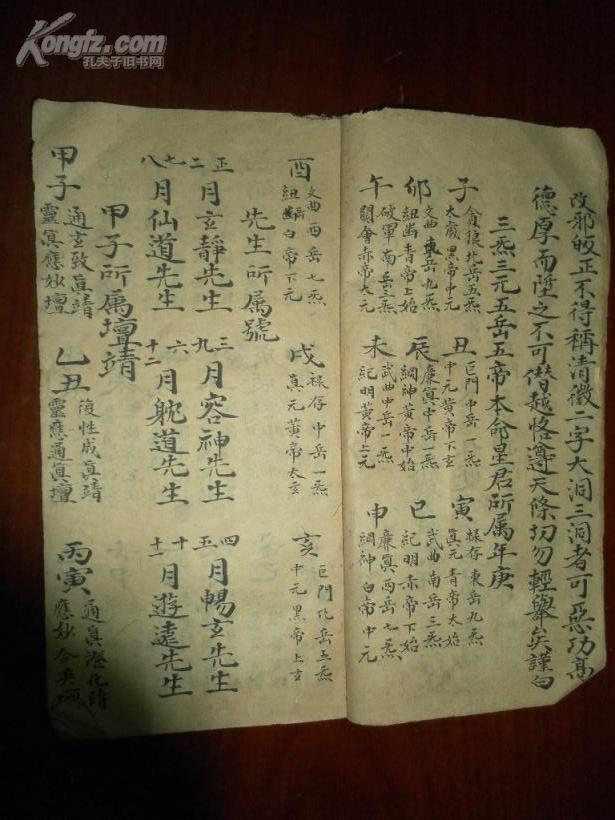 Kongfz.com
孔夫子旧书网
改邪皈正不得稱清微二字大洞三洞者可惡功高
德厚而陞之不可僭越恪遵天條切勿輕舉矣謹白
三炁三元五岳五帝本命星君所属年庚
子 貪狼北岳五炁 太歲黑帝中元
丑 巨門中岳一炁 中元黄帝下玄
寅 祿存東岳九炁 真元青帝太始
卯 文曲東岳九炁 紐幽青帝上始
辰 廉真中岳一炁 綱神黄帝中始
巳 武曲南岳三炁 紀明赤帝下始
午 破軍南岳三炁 關會赤帝太元
未 武曲中岳一炁 紀明黄帝上元
申 廉真西岳七炁 綱神白帝中元
酉 文曲西岳七炁 紐幽白帝下元
戌 祿存中岳一炁 真元黄帝太玄
亥 巨門北岳五炁 中元黑帝上玄
先生所属號
正二月玄靜先生
三九月容神先生
四五月暢玄先生
七八月仙道先生
六十二月躭道先生
十十一月遊遠先生
甲子所属壇靖
甲子 通玄致真靖 靈真應妙壇
乙丑 復性成真靖 靈應通真壇
丙寅 通真澄化靖 應妙合